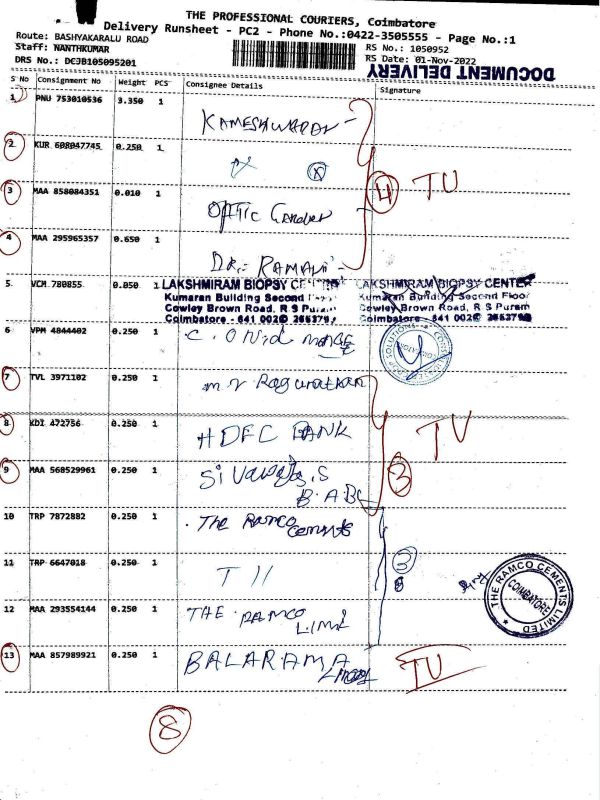 THE PROFESSIONAL COURIERS, Coimbatore
Delivery Runsheet - PC2 - Phone No.:0422-3505555 - Page No.:1
Route: BASHYAKARALU ROAD
RS No.: 1050952
Staff: NANTHKUMAR
RS Date: 01-Nov-2022
DRS No.: DCJB105095201
DOCUMENT DELIVERY
S No Consignment No Weight PCS Consignee Details Signature
1 PNU 753010536 3.350 1 KAMESHWARAN
2 KUR 608047745 0.250 1
4 TU
3 MAA 858084351 0.010 1 OPTIC
4 MAA 295965357 0.650 1 DR. RAMANI
5. VCM 780855 0.050 1 LAKSHMIRAM BIOPSY CENTRE LAKSHMIRAM BIOPSY CENTER
Kumaran Building Second Floor Kumaran Building Second Floor
Cowley Brown Road, R.S Puram Cowley Brown Road, R S Puram
Coimbatore - 641 002 Coimbatore - 641 002
6 VPM 4844402 0.250 1
7 TVL 3971102 0.250 1 mr Ragunathan
8 KDI 472756 0.250 1 HDFC BANK
TU
9 MAA 568529961 0.250 1
3
10 TRP 7872882 0.250 1 The RAMCO cements
11 TRP 6647018 0.250 1 T 11
3
THE RAMCO CEMENTS LIMITED
COIMBATORE
12 MAA 293554144 0.250 1 THE RAMCO
13 MAA 857989921 0.250 1 BALARAMA
TU
8